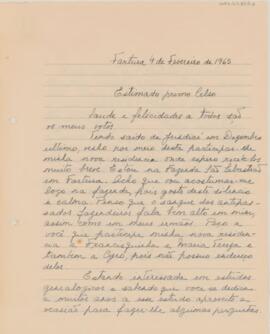 Fartura 4 de Fevereiro de 1965
Estimado primo Celso
Saude e felicidades a todos são
os meus votos.
Tendo saido de ferias em Dezembro
ultimo, venho por meio desta participar-lhe
minha nova residencia onde espero recebe-los
muito breve. Estou na Fazenda São Sebastião
em Fartura. Acho que vou acostumar-me
logo na fazenda, pois gosto deste silencio
e calma. Penso que o sangue dos antepas-
sados fazendeiros fala bem alto em mim,
assim como em meus irmãos. Peço a
você que participe minha nova residen-
cia a Francisquinho e Maria Tereza e
tambem a Cyro, pois não possuo endereço
deles.
Estando interessada em estudos
genealogicos e sabendo que você se dedica
a muitos anos a esse estudo aproveito a
ocasião para fazer-lhe algumas perguntas.